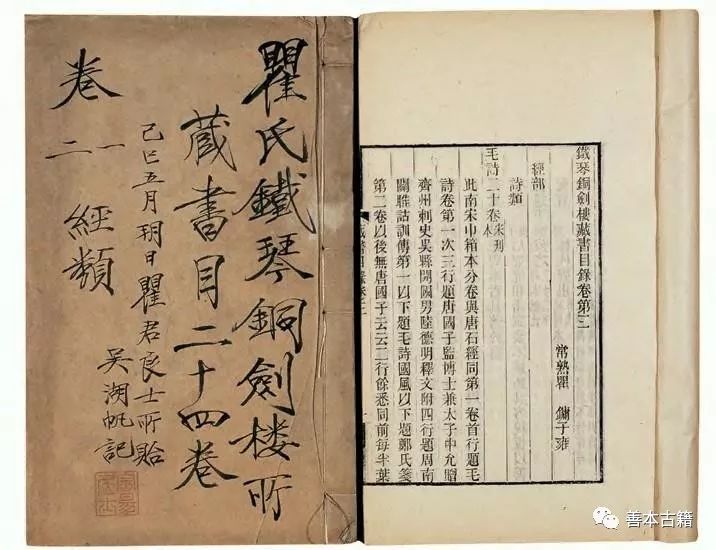 瞿氏鐵琴銅劍楼所
藏書目二十四卷
己巳五月朔日瞿君良士所貽
吳湖帆記
卷
一
二
經類
鐵琴銅劍樓藏書目錄卷第三
常熟瞿 鏞子雍
經部
詩類
毛詩二十卷宋刊本
此南宋巾箱本分卷與唐石經同第一卷首行題毛
詩卷第一次三行題唐國子監博士兼太子中允贈
齊州刺史吳縣開國男陸德明釋文附四行題周南
關雎詁訓傳第一以下題毛詩國風以下題鄭氏箋
第二卷以後無唐國子云云二行餘悉同前每半葉
善本古籍